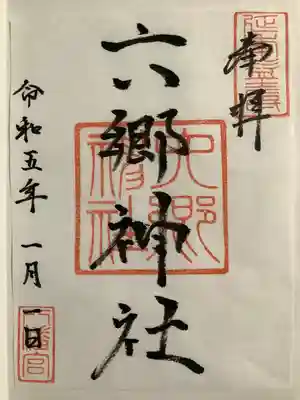 奉拝
六郷神社
六郷
神社
令和五年 一月 一日
八幡宮